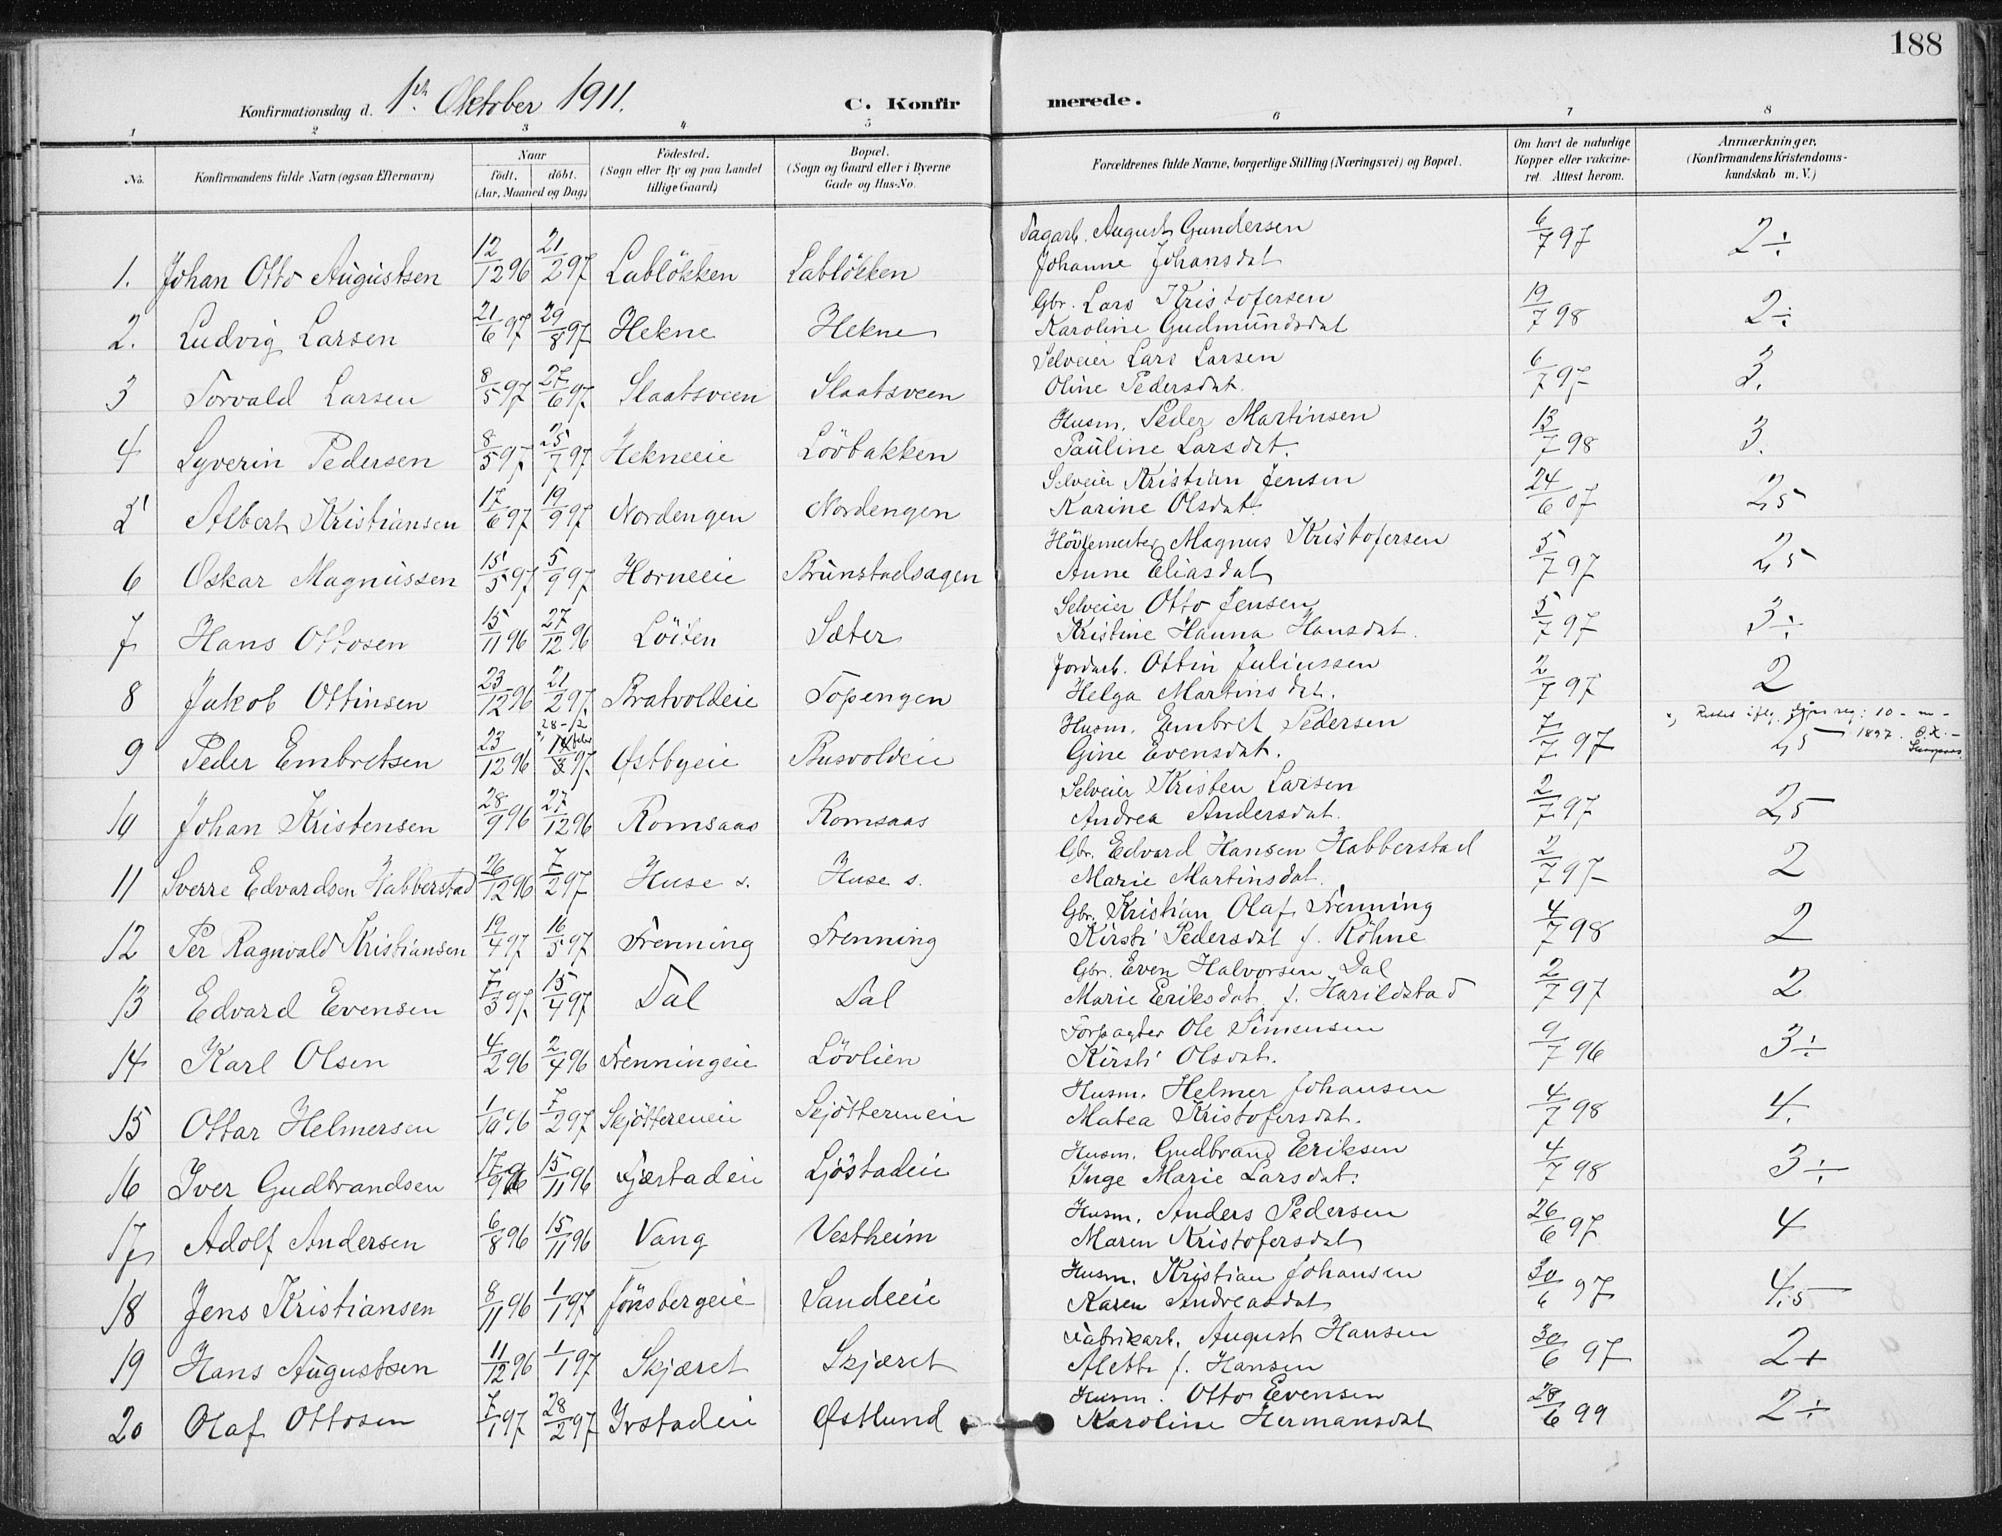 188
Konfirmationsdag d. 1ste Oktober 1911. C. Konfirmerede.
1 2 3 4 5 6 7 8
No. Konfirmandens fulde Navn (ogsaa Efternavn) Naar født. døbt. (Aar, Maaned og Dag) Fødested. (Sogn eller By og paa Landet tillige Gaard) Bopæl. (Sogn og Gaard eller i Byerne Gade og Hus-No. Forældrenes fulde Navne, borgerlige Stilling (Næringsvei) og Bopæl. Om havt de naturlige Kopper eller vaccineret. Attest herom. Anmærkninger. (Konfirmandens Kristendomskundskab m. V.)
1. Johan Otto Augustsen 12/12 96 21/2 97 Labløkken Labløkken Dagarb. August Gundersen 6/7 97 2 ÷
Johanne Johansdat
2. Ludvig Larsen 21/6 97 29/8 97 Hekne Hekne Gbr. Lars Kristofersen 19/7 98 2 ÷
Karoline Gudmundsdat
3 Torvald Larsen 8/5 97 27/6 97 Slaatsveen Slaatsveen Selveier Lars Larsen 6/7 97 3.
Oline Pedersdat.
4 Syverin Pedersen 8/5 97 25/7 97 Hekneeie Lövbakken Husm. Peder Martinsen 13/7 98 3.
Pauline Larsdat.
5 Albert Kristiansen 17/6 97 19/9 97 Nordengen Nordengen Selveier Kristian Jensen 24/6 07 2,5
Karine Olsdat.
6 Oskar Magnussen 15/5 97 5/9 97 Horneeie Brunstadsagen Magnus Kristofersen 5/7 97 2,5
Anne Eliasdat
7 Hans Ottosen 15/11 96 27/12 96 Löiten Sæter Selveier Otto Jensen 5/7 97 3 ÷
Kristine Hanna Hansdat.
8 Jakob Ottinsen 23/12 96 21/2 97 Bratvoldeie Topengen Jordarb. Ottin Juliussen 2/7 97 2
Helga Martinsdat.
9 Peder Embretsen 23/12 96 28-/2 97 Østbyeie Busvoldeie Husm. Embret Pedersen 7/7 97 2,5 x) Rettet iflg. 10 - m - 1897.
Gine Evensdat.
10 Johan Kristensen 28/9 96 27/12 96 Romsaas Romsaas Selveier Kristen Larsen 2/7 97 2,5
Andrea Andersdat.
11 Sverre Edvardsen Habberstad 26/12 96 7/2 97 Huse s. Huse s. Gbr. Edvard Hansen Habberstad 2/7 97 2
Marie Martinsdat.
12 Per Ragnvald Kristiansen 19/4 97 16/5 97 Frenning Frenning Gbr. Kristian Olaf Frenning 4/7 98 2
Kirsti Pedersdat f. Röhne
13 Edvard Evensen 7/3 97 15/4 97 Dal Dal Gbr. Even Halvorsen Dal 2/7 97 2
Marie Eriksdat f. Harildstad
14 Karl Olsen 4/2 96 2/4 96 Frenningeie Lövlien Forpagter Ole Simensen 9/7 96 3 ÷
Kirsti Olsdat.
15 Ottar Helmersen 1/10 96 7/2 97 Skjöttereneie Husm. Helmer Johansen 4/7 98 4.
Matea Kristofersdat.
16 Iver Gudbrandsen 17/9 96 15/11 96 Husm. Gudbrand Eriksen 4/7 98 3 ÷
Inge Marie Larsdat.
17 Adolf Andersen 6/8 96 15/11 96 Vang Vestheim Husm. Anders Pedersen 26/6 97 4
Maren Kristofersdat
18 Jens Kristiansen 8/11 96 1/1 97 Jönsbergeie Sandeeie Husm. Kristian Johansen 30/6 97 4,5
Karen Andreasdat
19 Hans Augustsen 11/12 96 1/1 97 Skjæret Skjæret Fabrikarb. August Hansen 30/6 97 2 +
Alette f. Hansen
20 Olaf Ottosen 7/1 97 28/2 97 Ivstadeie Østlund Husm. Otto Evensen 28/6 99 2 ÷
Karoline Hermansdat